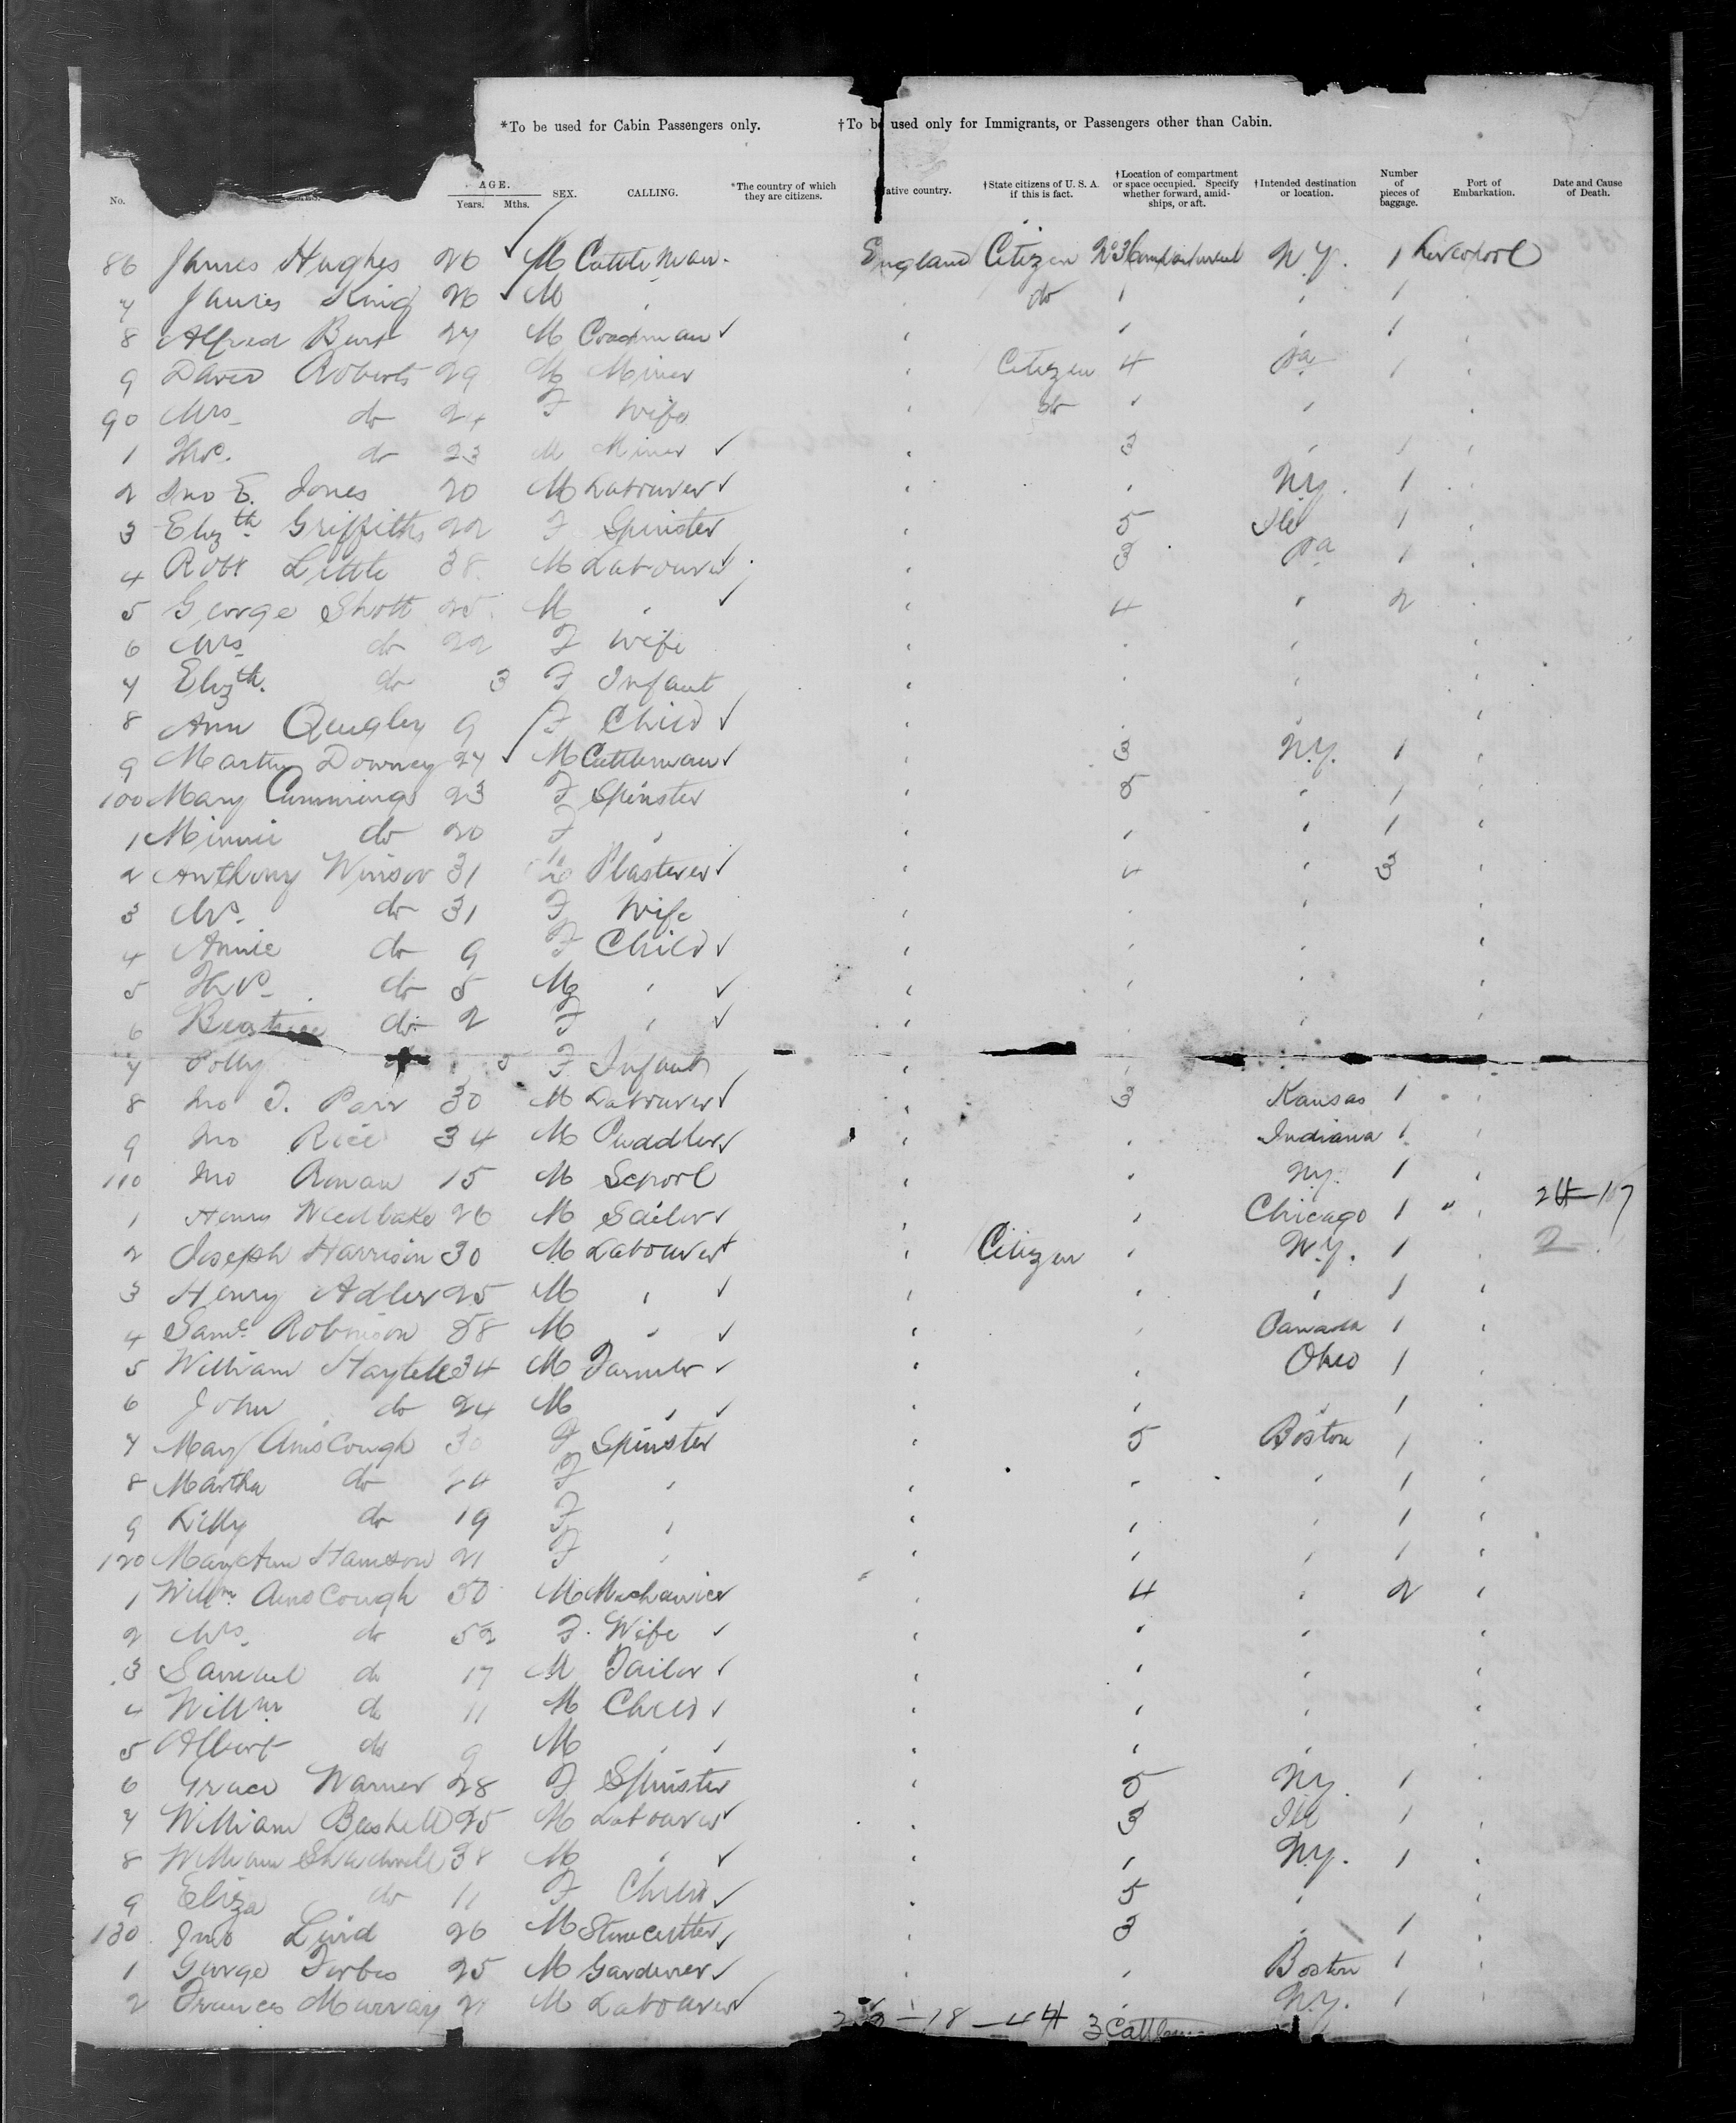 *To be used for Cabin Passengers only. †To be used only for Immigrants, or Passengers other than Cabin.
No. AGE. Years. Mths. SEX. CALLING. *The country of which they are citizens. Native country. †State citizens of U. S. A. if this is fact. †Location of compartment or space occupied. Specify whether forward, amid-ships, or aft. †Intended destination or location. Number of pieces of baggage. Port of Embarkation. Date and Cause of Death.
86 James Hughes 26 ✓ M Cattleman England Citizen No 3 Compartment N.Y. 1 Liverpool
7 James King 26 ✓ M " " do " " 1 "
8 Alfred Burt 27 M Coachman ✓ " " " 1 "
9 David Roberts 29 M Miner " Citizen 4 Pa 1 "
90 Mrs do 24 F Wife " do " " "
1 Thos. do 23 M Miner ✓ " 3 " 1 "
2 Jno E. Jones 20 M Labourer ✓ " " N.Y. 1 "
3 Elizth Griffiths 22 F Spinster " 5 Ill 1 "
4 Robt Little 38 M Labourer ✓ " 3 Pa 1 "
5 George Shott 25 M " ✓ " 4 " 2 "
6 Mrs do 22 F Wife " " " "
7 Elizth. do 3 F Infant " " " "
8 Ann Quigley 9 F Child ✓ " " " "
9 Martin Downey 27 ✓ M Cattleman ✓ " 3 N.Y. 1 "
100 Mary Cummings 23 F Spinster " 5 " 1 "
1 Minnie do 20 F " " " " 1 "
2 Anthony Winsor 31 Plasterer ✓ " 4 " 3 "
3 Mrs. do 31 F Wife " " " "
4 Annie do 9 F Child ✓ " " " "
5 Thos. do 5 M " ✓ " " " "
6 Beatrice do 2 F " ✓ " " " "
7 Polly 5 F Infant " "
8 Jno T. Parr 30 M Labourer ✓ " 3 Kansas 1 "
9 Jno Rice 34 M Puddler ✓ " " Indiana 1 "
110 Jno Ronan 15 M School " " N.Y. 1 "
1 Henry 26 M Sailor ✓ " " Chicago 1 "
2 Joseph Harrison 30 M Labourer " Citizen " N.Y. 1 "
3 Henry Adler 25 M " ✓ " " " 1 "
4 Saml. Robinson 58 M " ✓ " " Canada 1 "
5 William 34 M Farmer ✓ " " Ohio 1 "
6 John do 24 M " ✓ " " " 1 "
7 May Ainscough 30 F Spinster " 5 Boston 1 "
8 Martha do 24 F " " " " 1 "
9 Lilly do 19 F " " " " 1 "
120 Mary Ann 21 F " " " " 1 "
1 Willm. Ainscough 50 M Mechanic " 4 " 2 "
2 Mrs. do 52 F Wife ✓ " " " "
3 Samuel do 17 M Tailor ✓ " " " "
4 Willm do 11 M Child ✓ " " " "
5 Albert do 9 M " ✓ " " " "
6 Grace Warner 28 F Spinster " 5 N.Y. 1 "
7 William 25 M Labourer ✓ " 3 Ill 1 "
8 William Shadwell 38 M " ✓ " " N.Y. 1 "
9 Eliza do 11 F Child ✓ " 5 " "
130 Jno 26 M Stonecutter ✓ " 3 " 1 "
1 George Forbes 25 M Gardener ✓ " " Boston 1 "
2 Frances Murray M Labourer ✓ " N.Y. 1 "